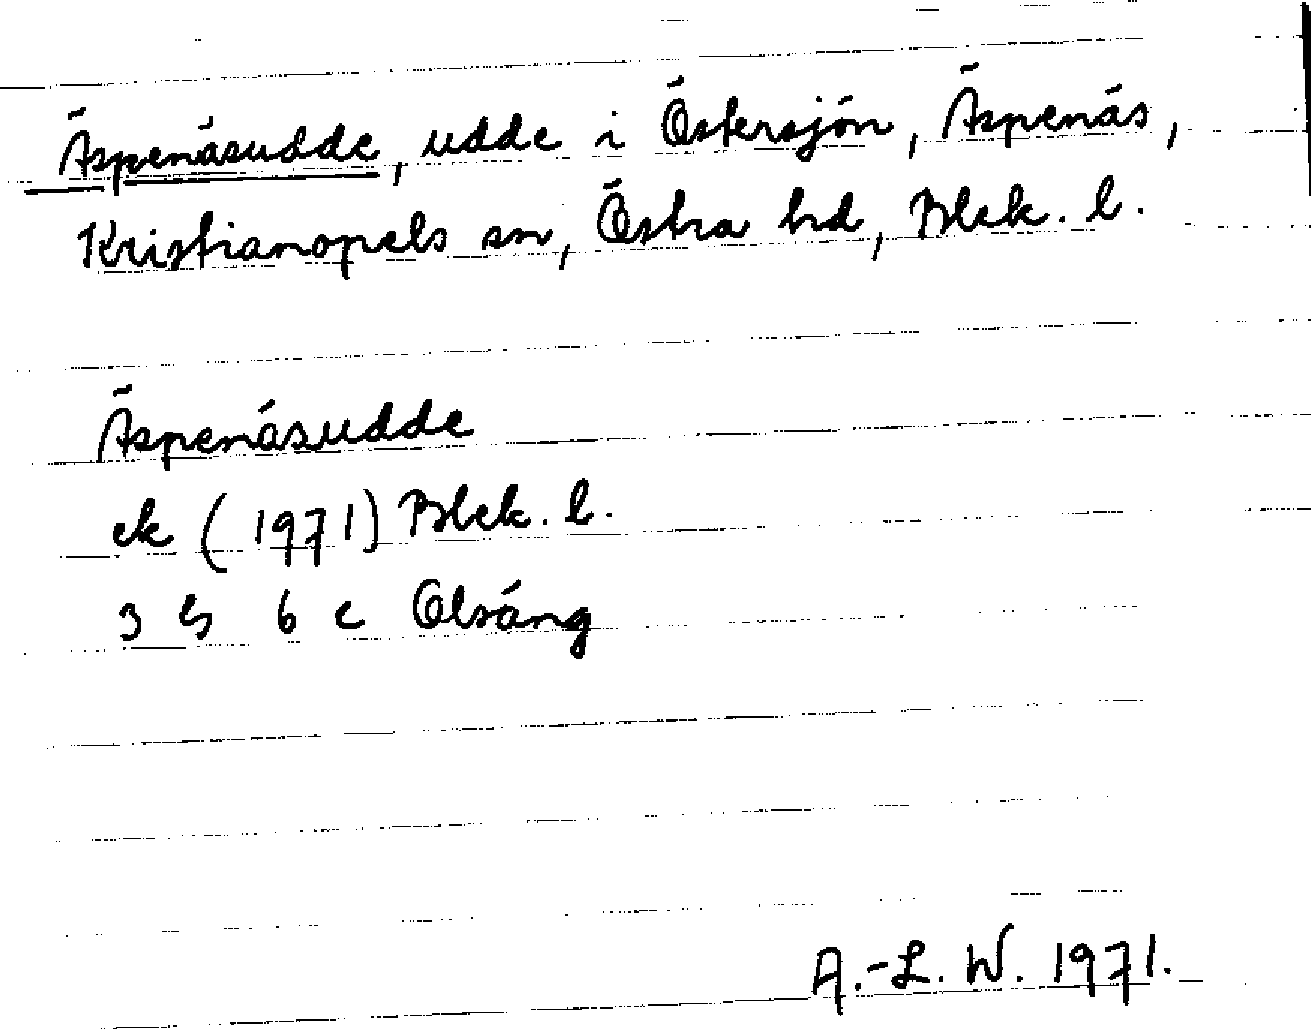 Äspenäsudde, udde i Östersjön, Äspenäs,
Kristianopels sn, Östra hd, Blek. l.
Äspenäsudde
ek (1971) Blek. l.
3 G 6 c Olsäng
A.-L. W. 1971.